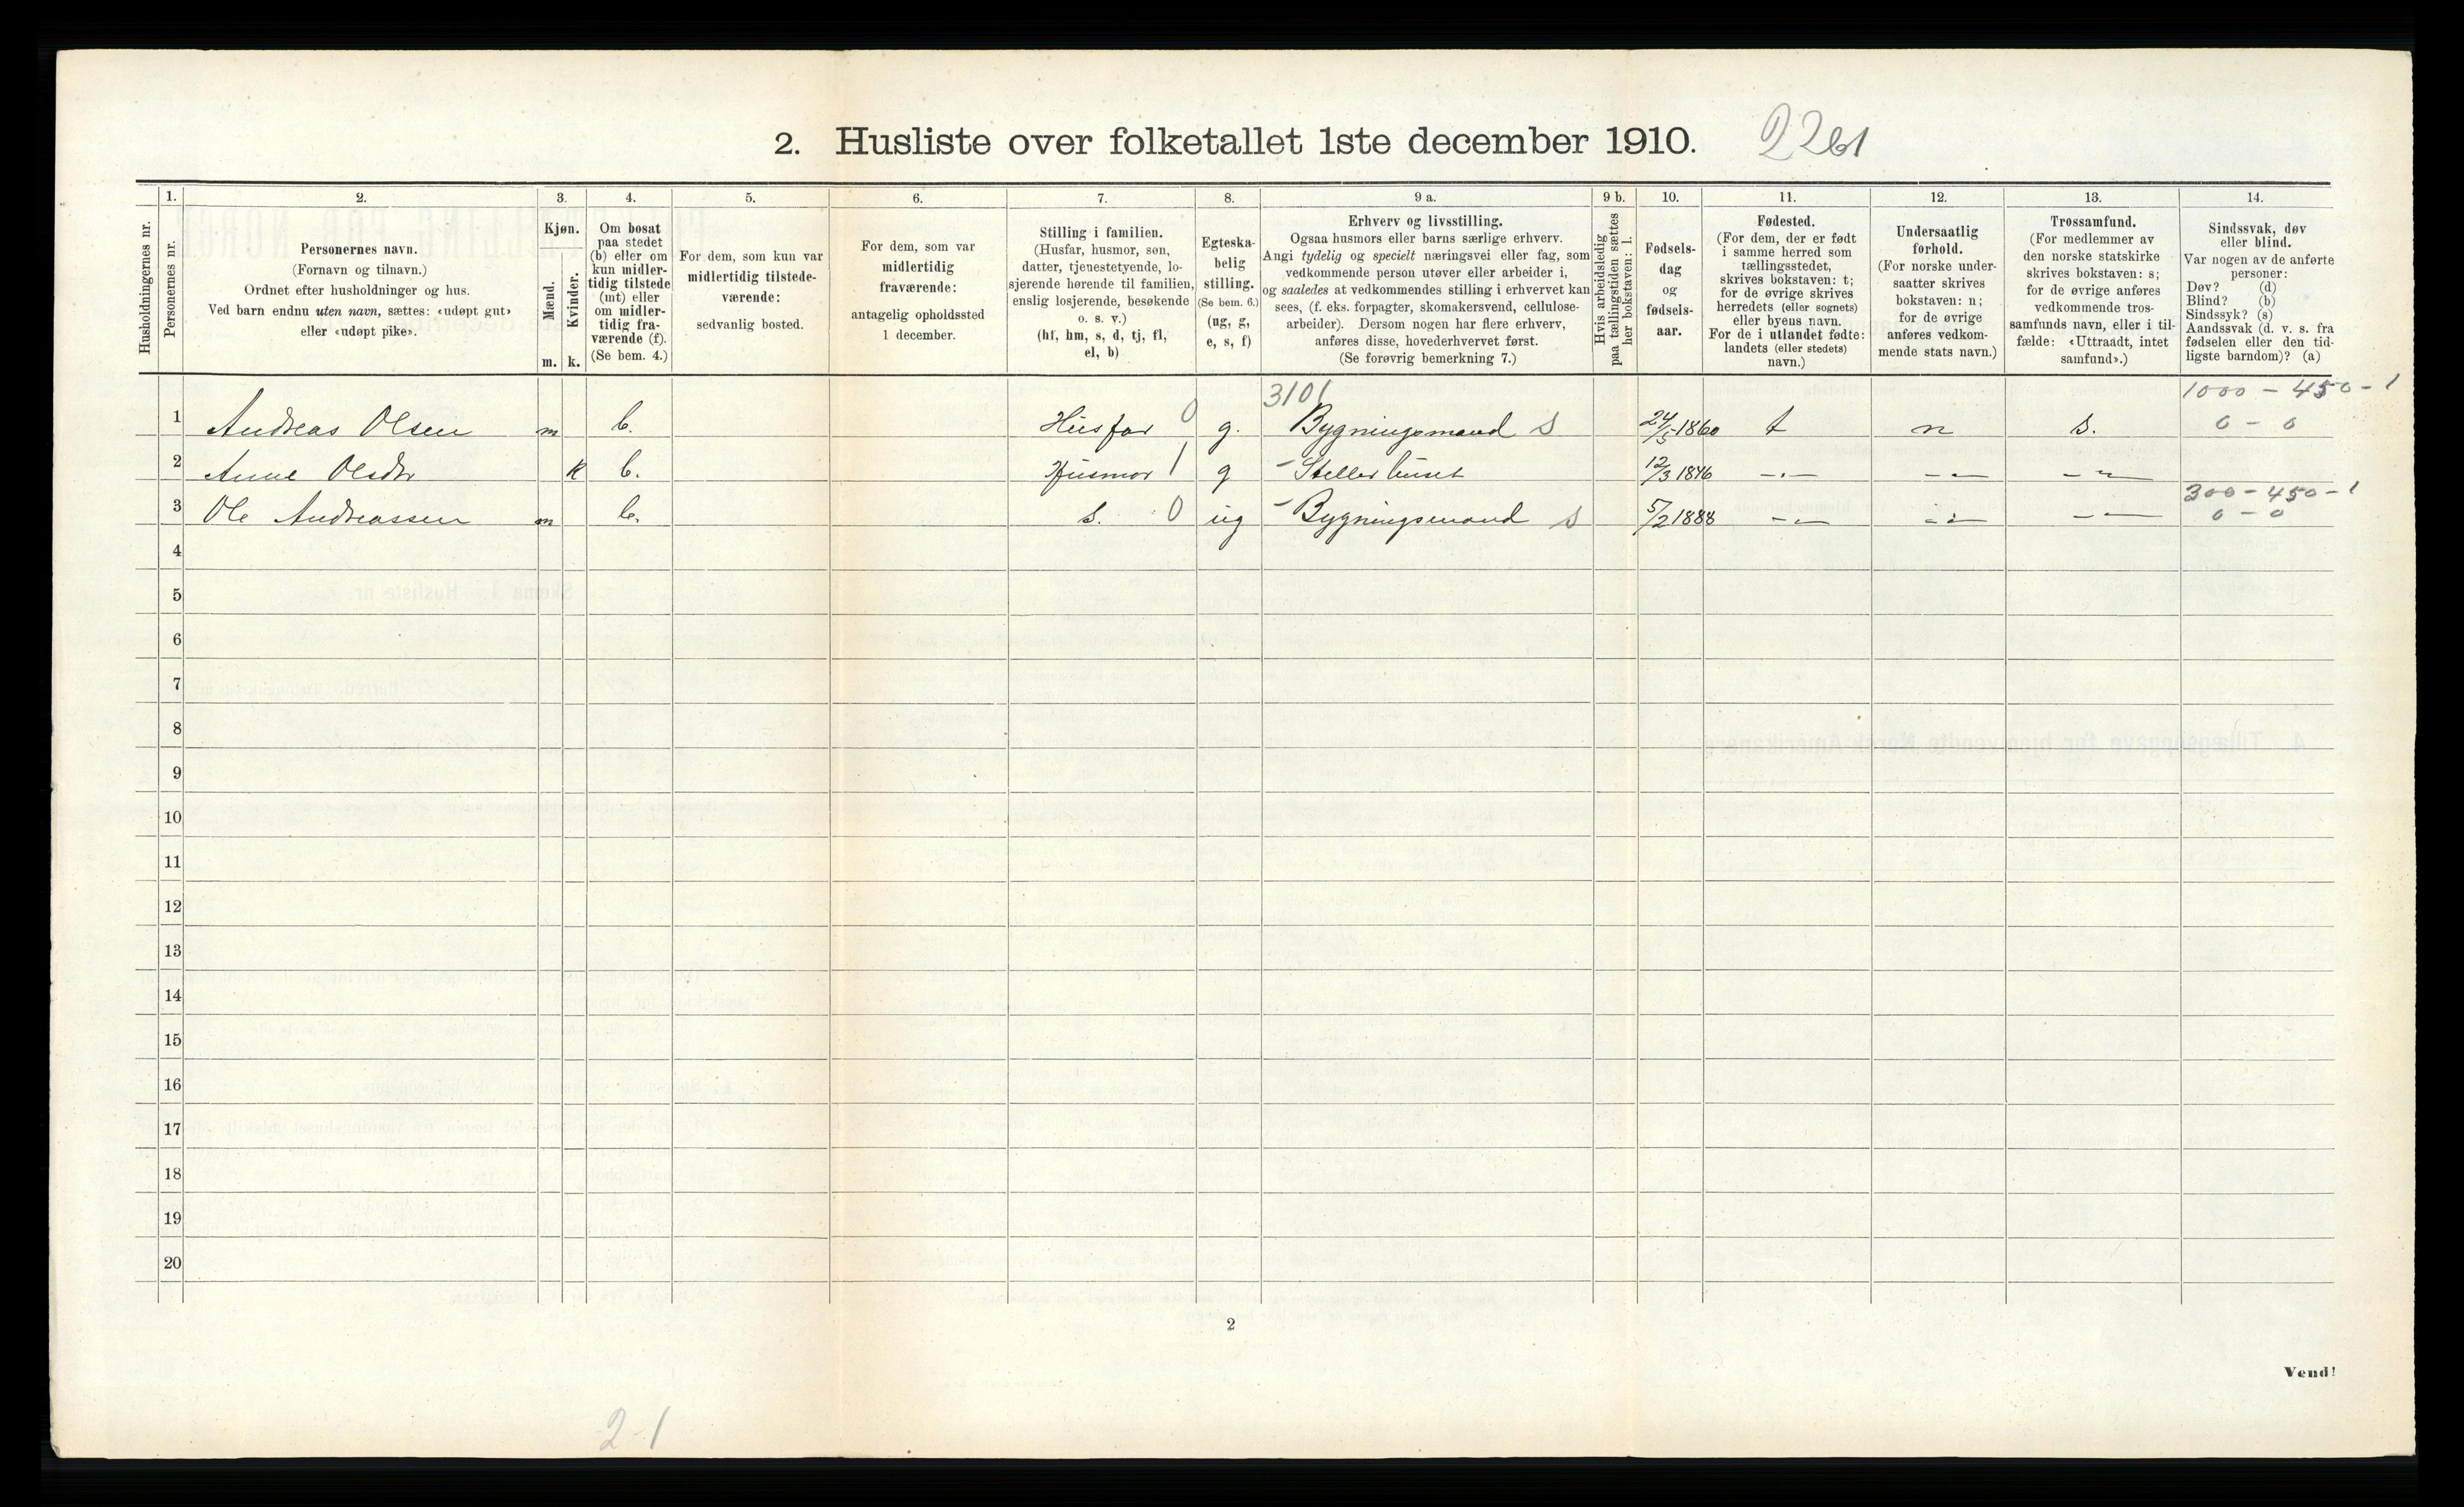 2. Husliste over folketallet 1ste december 1910. 2261
Husholdningernes nr.
1.
Personernes nr.
2.
Personernes navn.
(Fornavn og tilnavn.)
Ordnet efter husholdninger og hus.
Ved barn endnu uten navn, sættes: «udøpt gut»
eller «udøpt pike».
3.
Kjøn.
Mænd.
Kvinder.
m. k.
4.
Om bosat
paa stedet
(b) eller om
kun midler-
tidig tilstede
(mt) eller
om midler-
tidig fra-
værende (f).
(Se bem. 4.)
5.
For dem, som kun var
midlertidig tilstede-
værende:
sedvanlig bosted.
6.
For dem, som var
midlertidig
fraværende:
antagelig opholdssted
1 december.
7.
Stilling i familien.
(Husfar, husmor, søn,
datter, tjenestetyende, lo-
sjerende hørende til familien,
enslig losjerende, besøkende
o. s. v.)
(hf, hm, s, d, tj, fl,
el, b)
8.
Egteska-
belig
stilling.
(Se bem. 6.)
(ug, g,
e, s, f)
9 a.
Erhverv og livsstilling.
Ogsaa husmors eller barns særlige erhverv.
Angi tydelig og specielt næringsvei eller fag, som
vedkommende person utøver eller arbeider i,
og saaledes at vedkommendes stilling i erhvervet kan
sees, (f. eks. forpagter, skomakersvend, cellulose-
arbeider). Dersom nogen har flere erhverv,
anføres disse, hovederhvervet først.
(Se forøvrig bemerkning 7.)
9 b.
Hvis arbeidsledig
paa tællingstiden sættes
her bokstaven: l.
10.
Fødsels-
dag
og
fødsels-
aar.
11.
Fødested.
(For dem, der er født
i samme herred som
tællingsstedet,
skrives bokstaven: t;
for de øvrige skrives
herredets (eller sognets)
eller byens navn.
For de i utlandet fødte:
landets (eller stedets)
navn.)
12.
Undersaatlig
forhold.
(For norske under-
saatter skrives
bokstaven: n;
for de øvrige
anføres vedkom-
mende stats navn.)
13.
Trossamfund.
(For medlemmer av
den norske statskirke
skrives bokstaven: s;
for de øvrige anføres
vedkommende tros-
samfunds navn, eller i til-
fælde: «Uttraadt, intet
samfund».)
14.
Sindssvak, døv
eller blind.
Var nogen av de anførte
personer:
Døv? (d)
Blind? (b)
Sindssyk? (s)
Aandssvak (d. v. s. fra
fødselen eller den tid-
ligste barndom)? (a)
3101 1000 - 450 - 1
1 Andreas Olsen m b. Husfar 0 g. Bygningsmand S 24/5-1860 t n s. 0 - 0
2 Anne Olsdtr k b. Husmor 1 g - Steller huset 12/3 1846 -.- -.- -.-
300 - 450 - 1
3 Ole Andreassen m b. s. 0 ug - Bygningsmand S 5/2 1888 -.- -.- -.- 0 - 0
4
5
6
7
8
9
10
11
12
13
14
15
16
17
18
19
20
2
Vend!
2-1